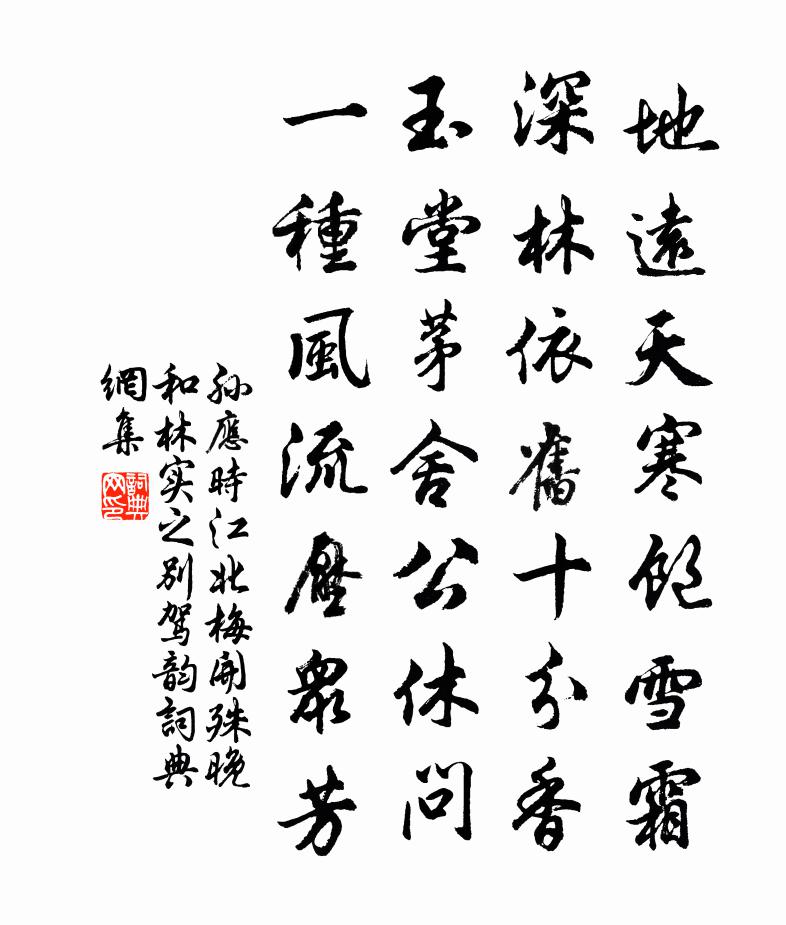 地遠天寒飽雪霜
深林依舊十分香
玉堂茅舍公休問
一種風流壓衆芳
孙應時江北梅開殊晚
和林实之别駕韵詞典
網集
詞典網印